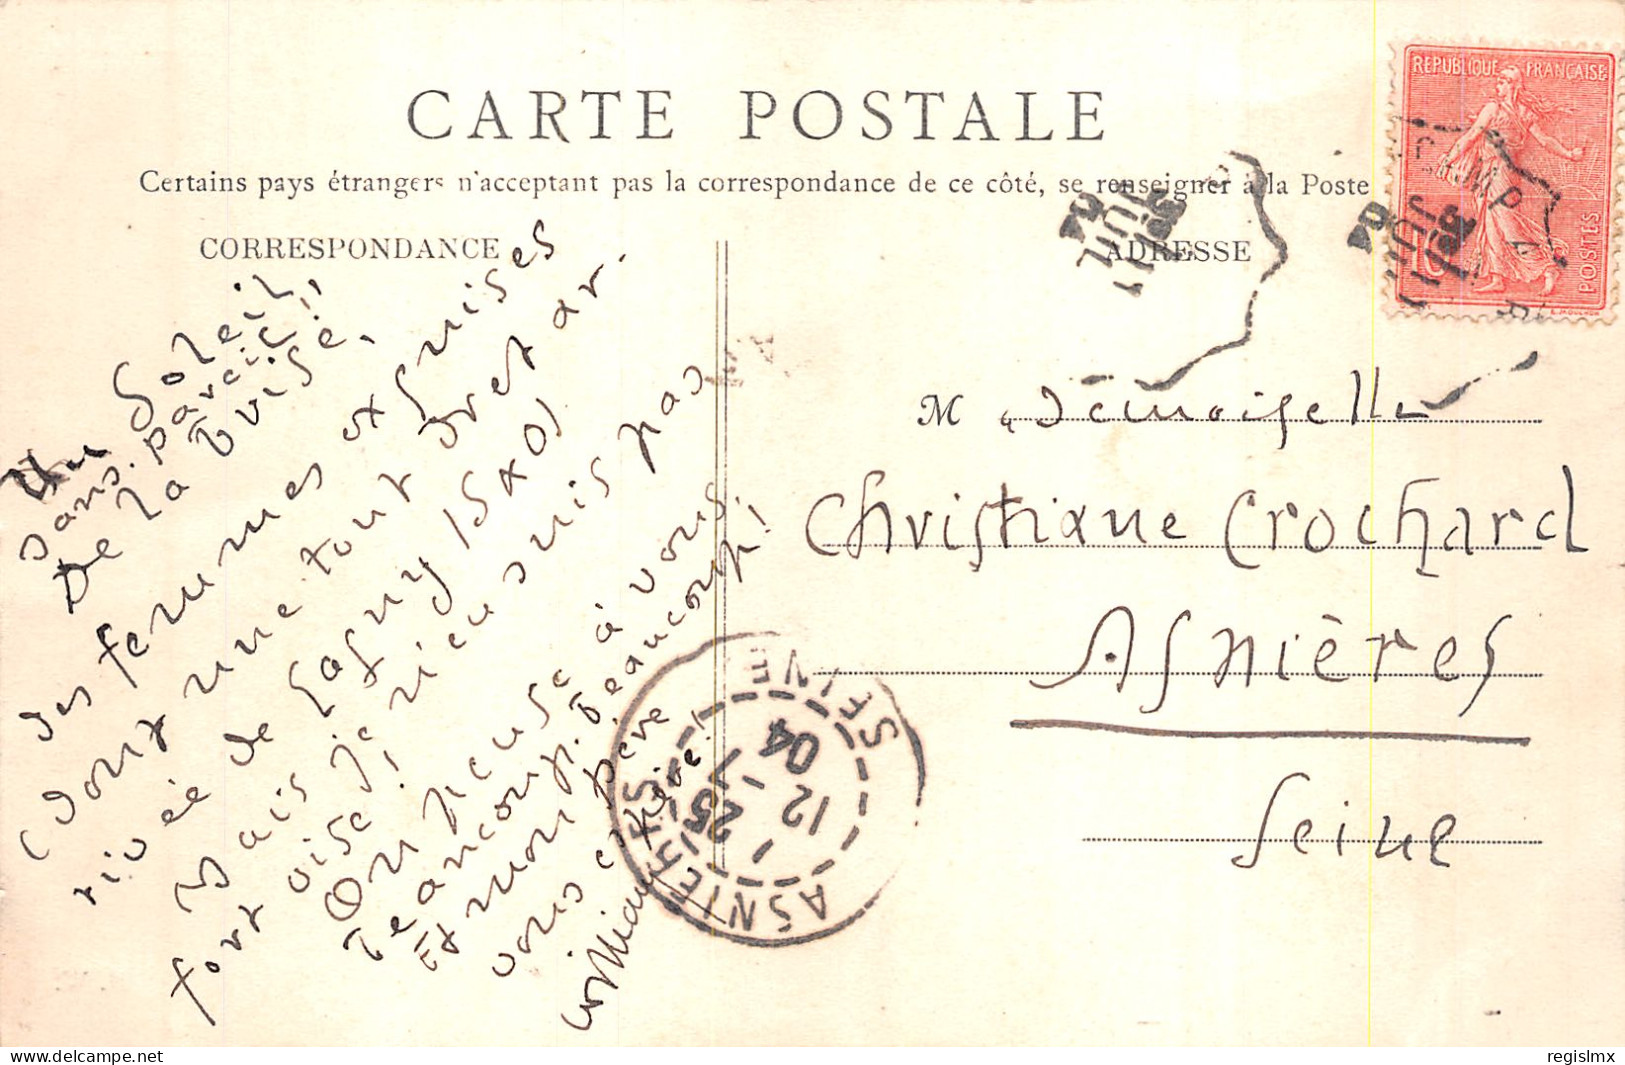 CARTE POSTALE
Certains pays étrangers n'acceptent pas la correspondance de ce côté, se renseigner à la Poste
CORRESPONDANCE
ADRESSE
REPUBLIQUE FRANÇAISE
POSTES
10
Un Soleil
sans pareil!!
De la brise.
des femmes exquises
(dont une tout pret ar.
rivée de Lagny
mais je n'en suis pas
fort
On pense à vous
beaucoup. beaucoup!
Et mon père
vous
William
M ademoiselle
Christiane Crochard
Asnières
Seine
ASNIERES
SEINE
12
25
04
regislmx
delcampe.net